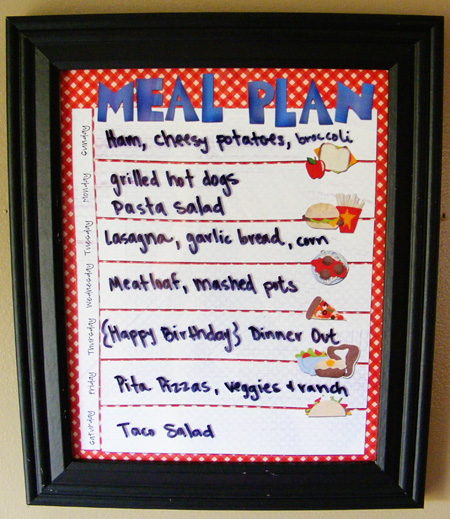 MEAL PLAN
Sunday
Ham, cheesy potatoes, broccoli
Monday
grilled hot dogs
Pasta Salad
Tuesday
Lasagna, garlic bread, corn
Wednesday
Meatloaf, mashed pots
Thursday
{Happy Birthday} Dinner Out
Friday
Pita Pizzas, veggies & ranch
Saturday
Taco Salad